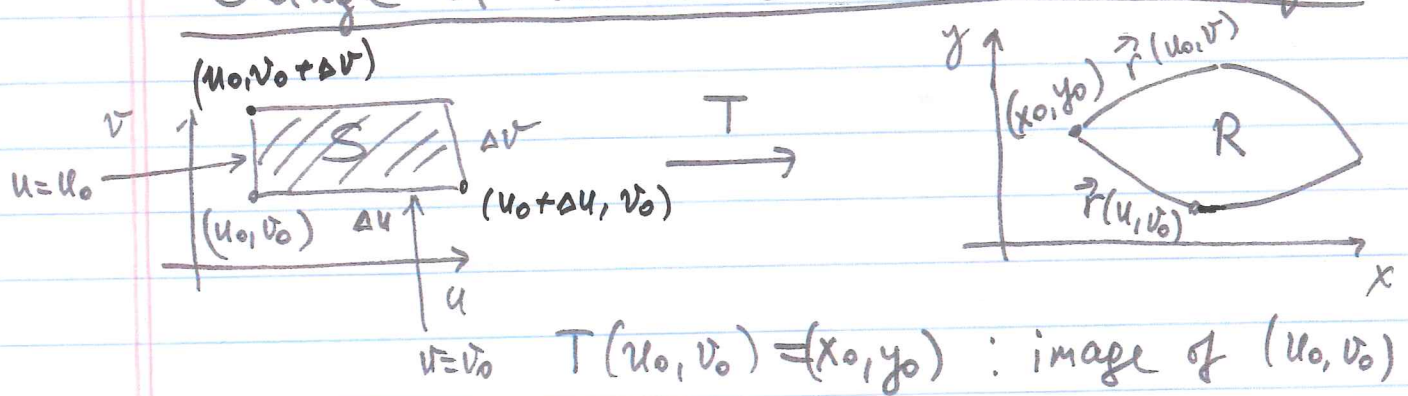 (u₀, v₀+Δv)
v
S
Δv
u=u₀
(u₀, v₀)
Δu
(u₀+Δu, v₀)
u
v=v₀
T
y
r⃗(u₀, v)
(x₀, y₀)
R
r⃗(u, v₀)
x
T(u₀, v₀) = (x₀, y₀) : image of (u₀, v₀)